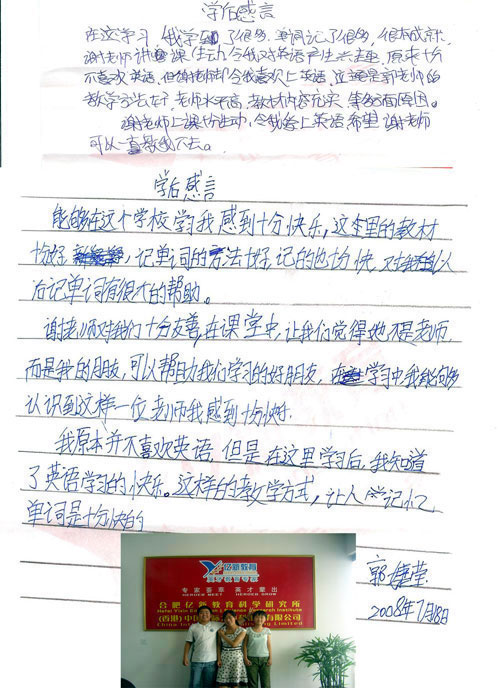 学后感言
在这学习,我学到了很多,单词记了很多,很有成就.
谢老师讲课生动,令我对英语产生兴趣,原来十分
不喜欢英语,但谢老师却令我喜欢上英语,这还是
教学方法好,老师水平高,教材内容充实 等多方面原因。
谢老师上课很生动,令我爱上英语,希望谢老师
可以一直教我下去。
学后感言
能够在这个学校学习我感到十分快乐,这本里的教材
十分好,记单词的方法十分好,记的也十分快,对我以
后记单词有很大的帮助。
谢老师对我们十分友善,在课堂中,让我们觉得她不是老师,
而是我的朋友,可以帮助我们学习的好朋友,学习中我能够
认识到这样一位老师我感到十分快乐.
我原本并不喜欢英语,但是在这里学习后,我知道
了英语学习的快乐。这样的教学方式,让人学记忆
单词是十分快的
2008年7月18日
亿新教育
专家荟萃 英才辈出
合肥亿新教育科学研究所